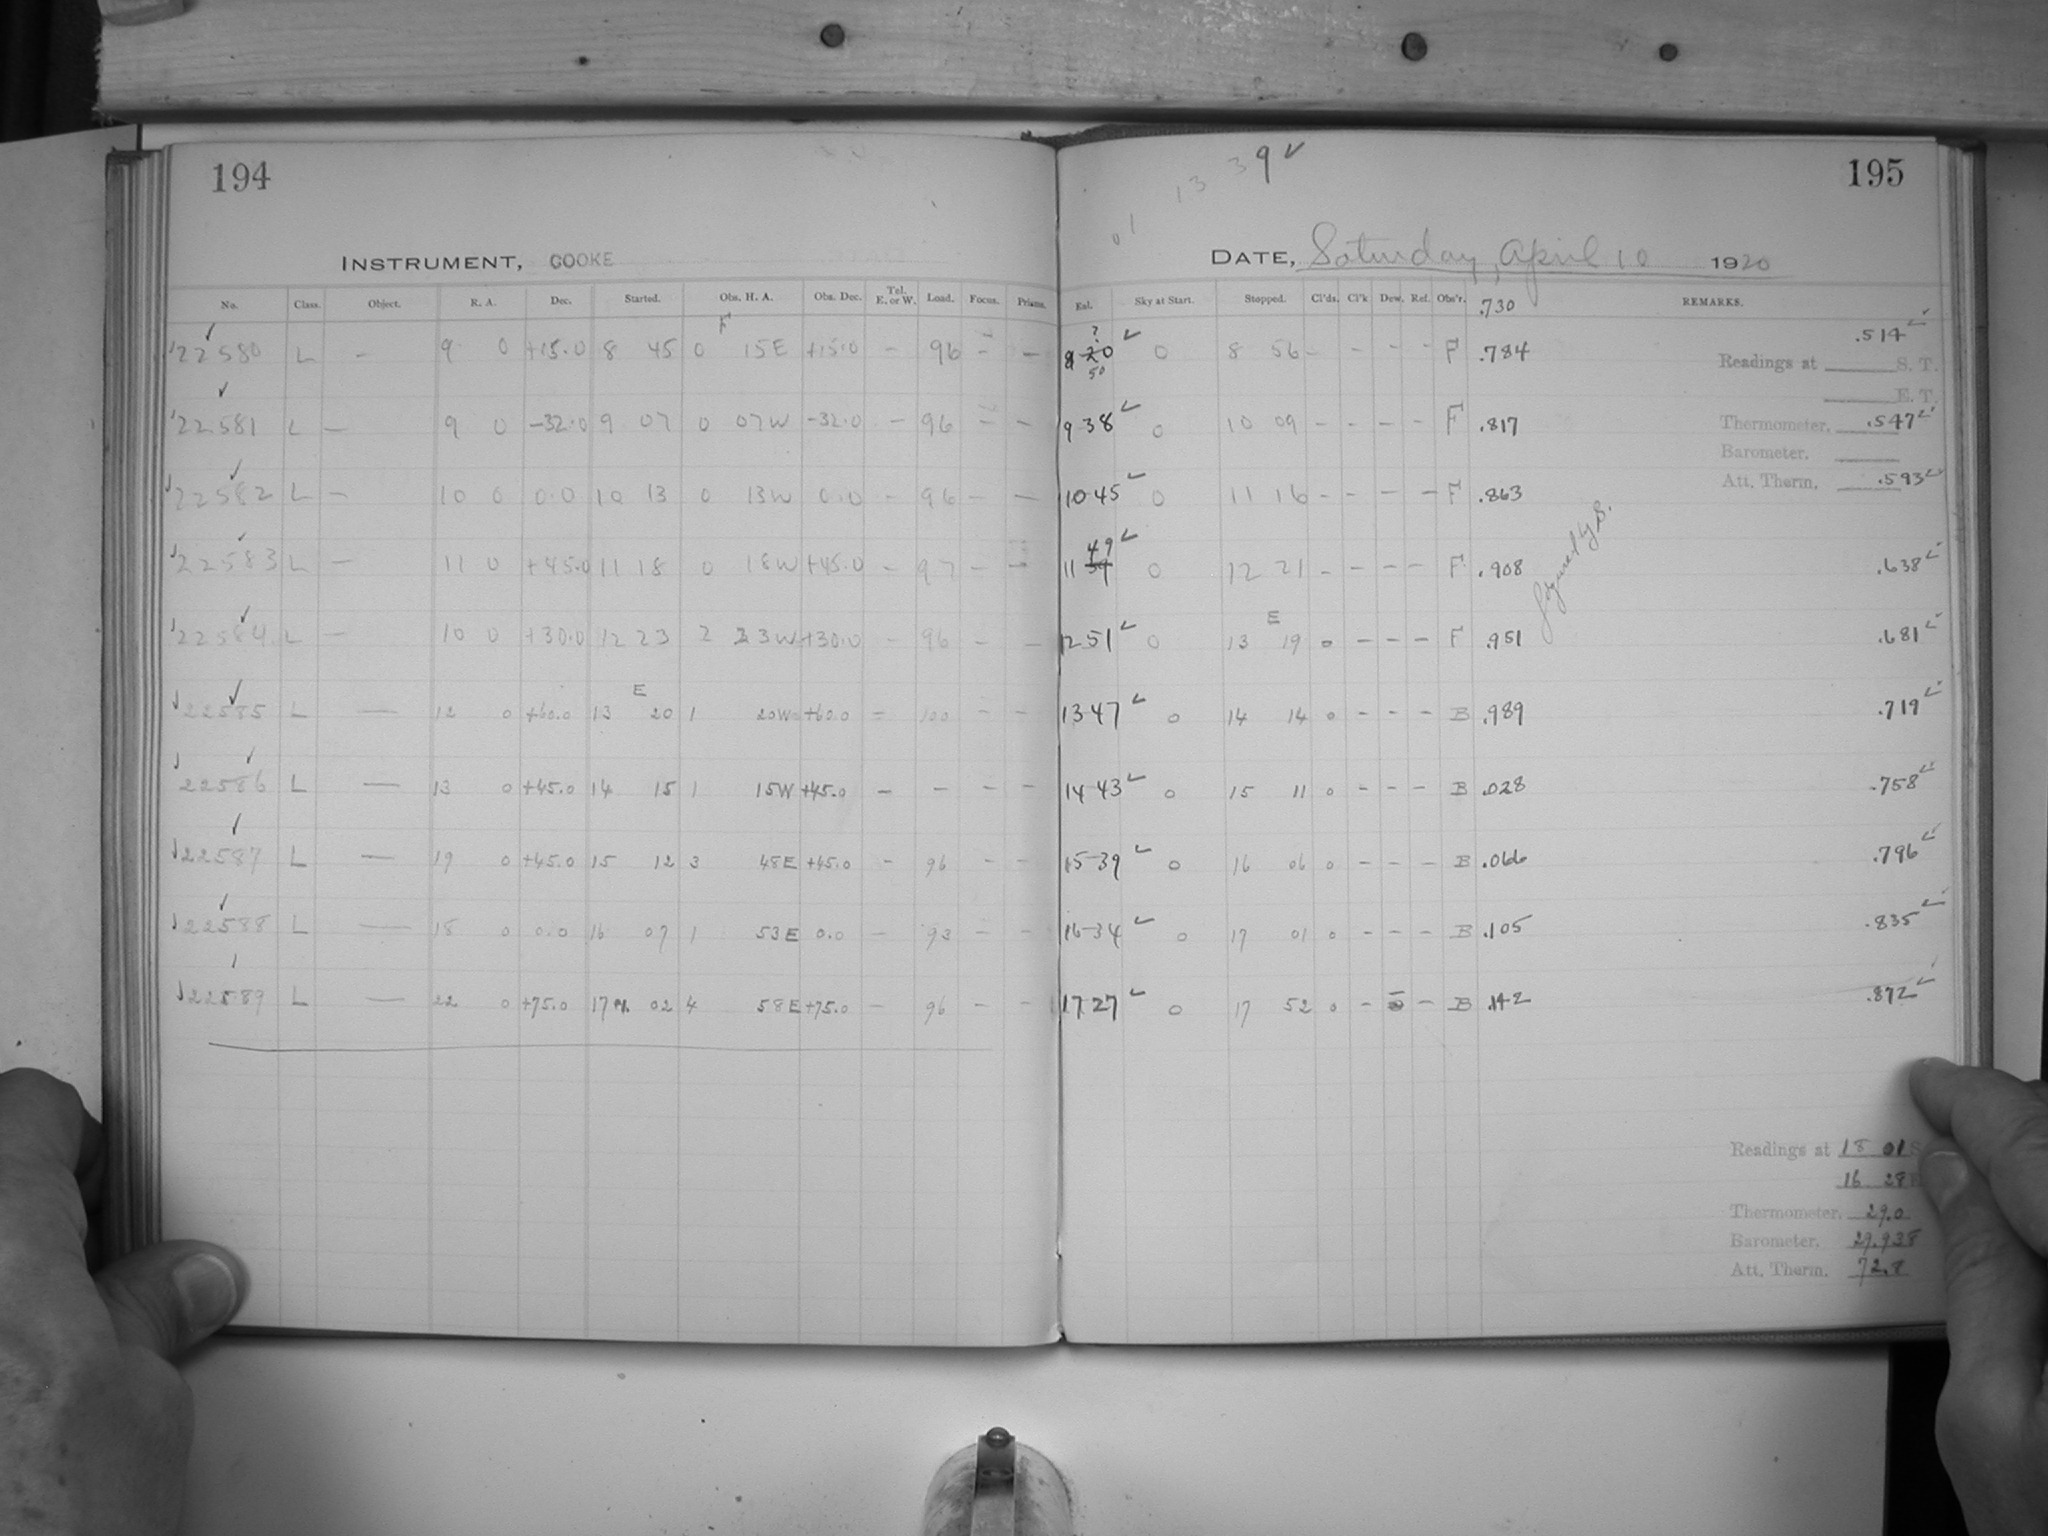 194
INSTRUMENT, COOKE
No. Class. Object. R. A. Dec. Started. Obs. H. A. Obs. Dec. Tel. E. or W. Load. Focus. Prisms.
F
✓22580 L - 9 0 +15.0 8 45 0 15E +15.0 - 96 - -
✓22581 L - 9 0 -32.0 9 07 0 07W -32.0 - 96 - -
✓22582 L - 10 0 0.0 10 13 0 13W 0.0 - 96 - -
✓22583 L - 11 0 +45.0 11 18 0 18W +45.0 - 97 - -
✓22584 L - 10 0 +30.0 12 23 2 23W +30.0 - 96 - -
E
✓22585 L - 12 0 +60.0 13 20 1 20W +60.0 - 100 - -
✓22586 L - 13 0 +45.0 14 15 1 15W +45.0 - - - -
✓22587 L - 19 0 +45.0 15 12 3 48E +45.0 - 96 - -
✓22588 L - 18 0 0.0 16 07 1 53E 0.0 - 93 - -
✓22589 L - 22 0 +75.0 17 02 4 58E +75.0 - 96 - -
01 13 39 ✓
195
DATE, Saturday, April 10 1920
Ext. Sky at Start. Stopped. Cl'ds. Cl'k Dew. Ref. Obs'r. .730 REMARKS.
?
8 20 ✓ 0 8 56 - - - - F .784 .514 ✓
50
Readings at S. T.
E. T.
9 38 ✓ 0 10 09 - - - - F .817 Thermometer, .547 ✓
Barometer.
10 45 ✓ 0 11 16 - - - - F .863 Att. Therm. .593 ✓
49 ✓
11 39 0 12 21 - - - - F .908 figured by S. .638 ✓
E
12 51 ✓ 0 13 19 0 - - - F .951 .681 ✓
13 47 ✓ 0 14 14 0 - - - B .989 .719 ✓
14 43 ✓ 0 15 11 0 - - - B .028 .758 ✓
15 39 ✓ 0 16 06 0 - - - B .066 .796 ✓
16 34 ✓ 0 17 01 0 - - - B .105 .835 ✓
17 27 ✓ 0 17 52 0 - 0 - B .142 .872 ✓
Readings at 18 01 S
16 28
Thermometer, 29.0
Barometer. 29.938
Att. Therm. 72.8